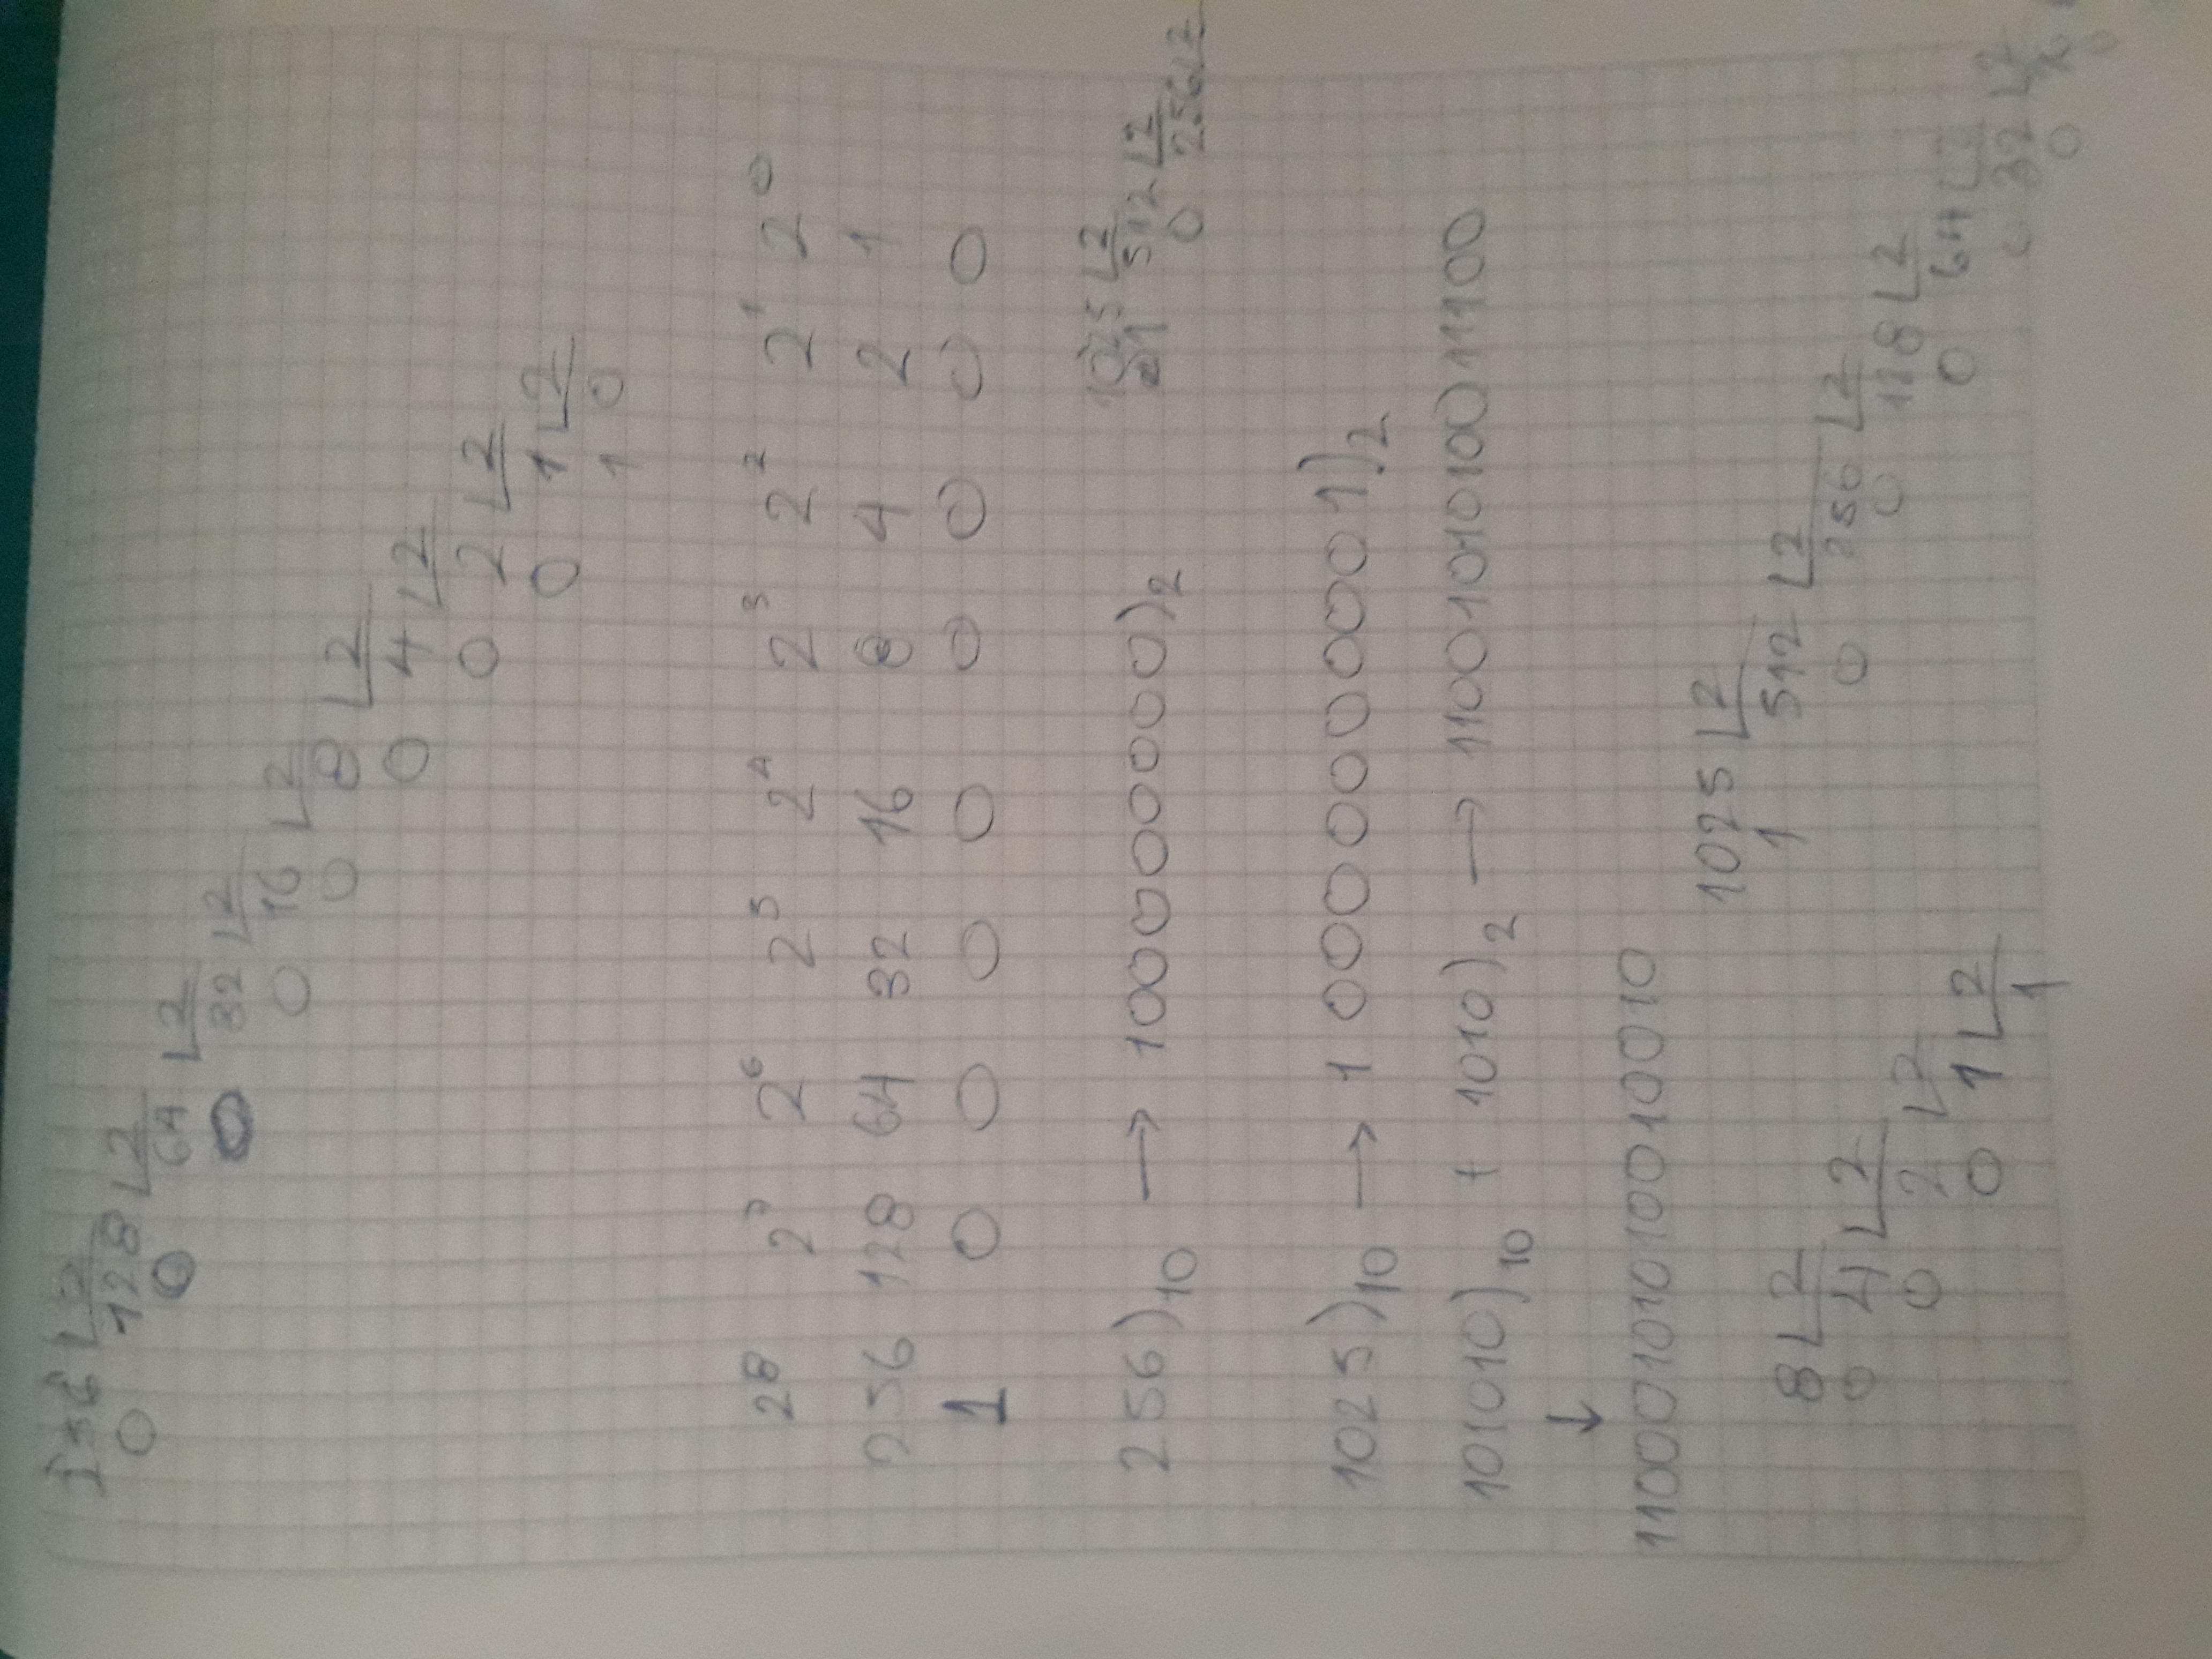 256 2
0 128 2
0 64 2
0 32 2
0 16 2
0 8 2
0 4 2
0 2 2
0 1 2
1 0
2⁸ 2⁷ 2⁶ 2⁵ 2⁴ 2³ 2² 2¹ 2⁰
256 128 64 32 16 8 4 2 1
1 0 0 0 0 0 0 0 0
256)₁₀ → 100000000)₂
1025 2
1 512 2
0 256 2
1025)₁₀ → 10000000001)₂
101010)₁₀ + 1010)₂ → 1100101010011100
↓
11000101010010010
8 2
0 4 2
0 2 2
0 1 2
1
1025 2
1 512 2
0 256 2
0 128 2
0 64 2
32 2
0